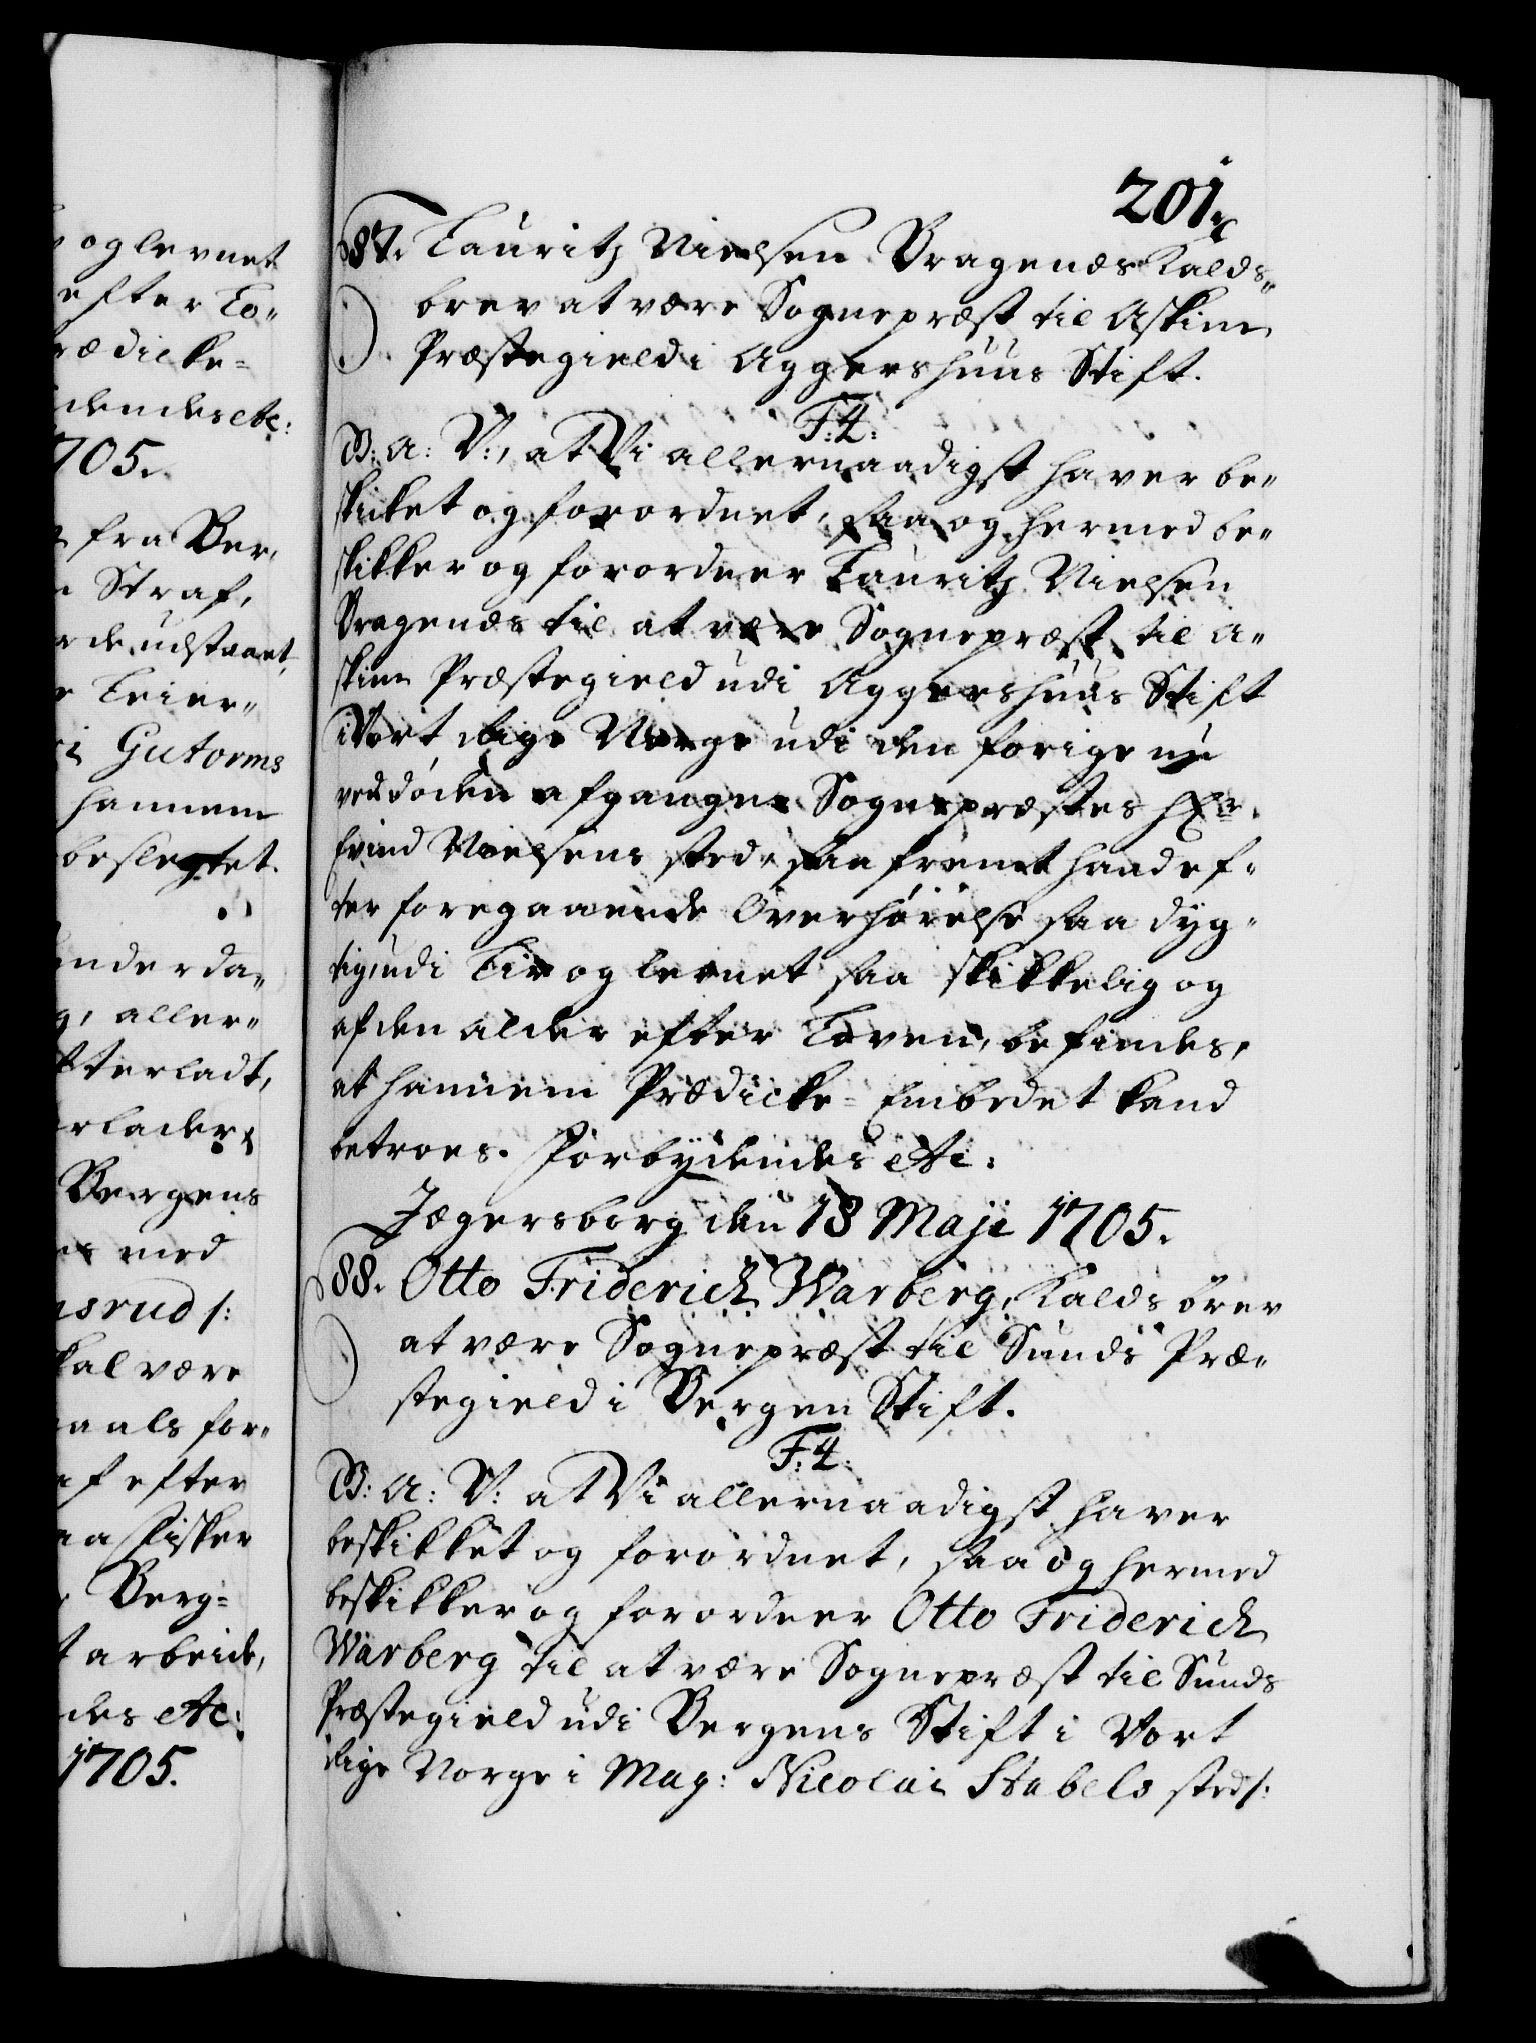 og levnet
efter Lo„
rædicke=
dendes etc:
705.
fra Ber„
Straf,
rde, udstaaet,
Leier„
Gutorms
hannem
beslegtet.
under da„
g, aller„
tterladt,
rlader,
Bergens
med
srud /:
kal være
aals for„
af efter
Fisker
Berg=
arbeide,
des etc:
1705.
201
87. Lauritz Nielsen Bragenæs Kalds„
brev at være Sognepræst til Askim
Præstegield i Aggershuus Stift.
F: 4:
G: A: V:, at Vi allernaadigst haver be„
skicket og forordnet, saa og hermed be„
skikker og forordner Lauritz Nielsen
Bragenæs til at være Sognepræst til A„
skim Præstegield udi Aggershuus Stift
i Vort rige Norge udi den forige nu
ved döden afgangne Sognepræstes Hr.
Evind Nielsens sted, saa fremt hand ef„
ter foregaaende Overhörelse saa dyg„
tig, udi Liv og levnet saa skikkelig og
af den Alder efter Loven, befindes,
at hannem Prædicke= Embedet kand
betroes. Forbydendes etc:
Jægersborg den 18 Maji 1705.
88. Otto Friderich Warberg, Kalds brev
at være Sognepræst til Sunds Præ„
stegield i Bergen Stift.
F: 4:
G: A: V: at Vi allernaadigst haver
beskikket og forordnet, saa og hermed
beskikker og forordner Otto Friderich
Warberg til at være Sognepræst til Sunds
Præstegield udi Bergens Stift i Vort
rige Norge i Mag: Nicolai Stabels sted /: